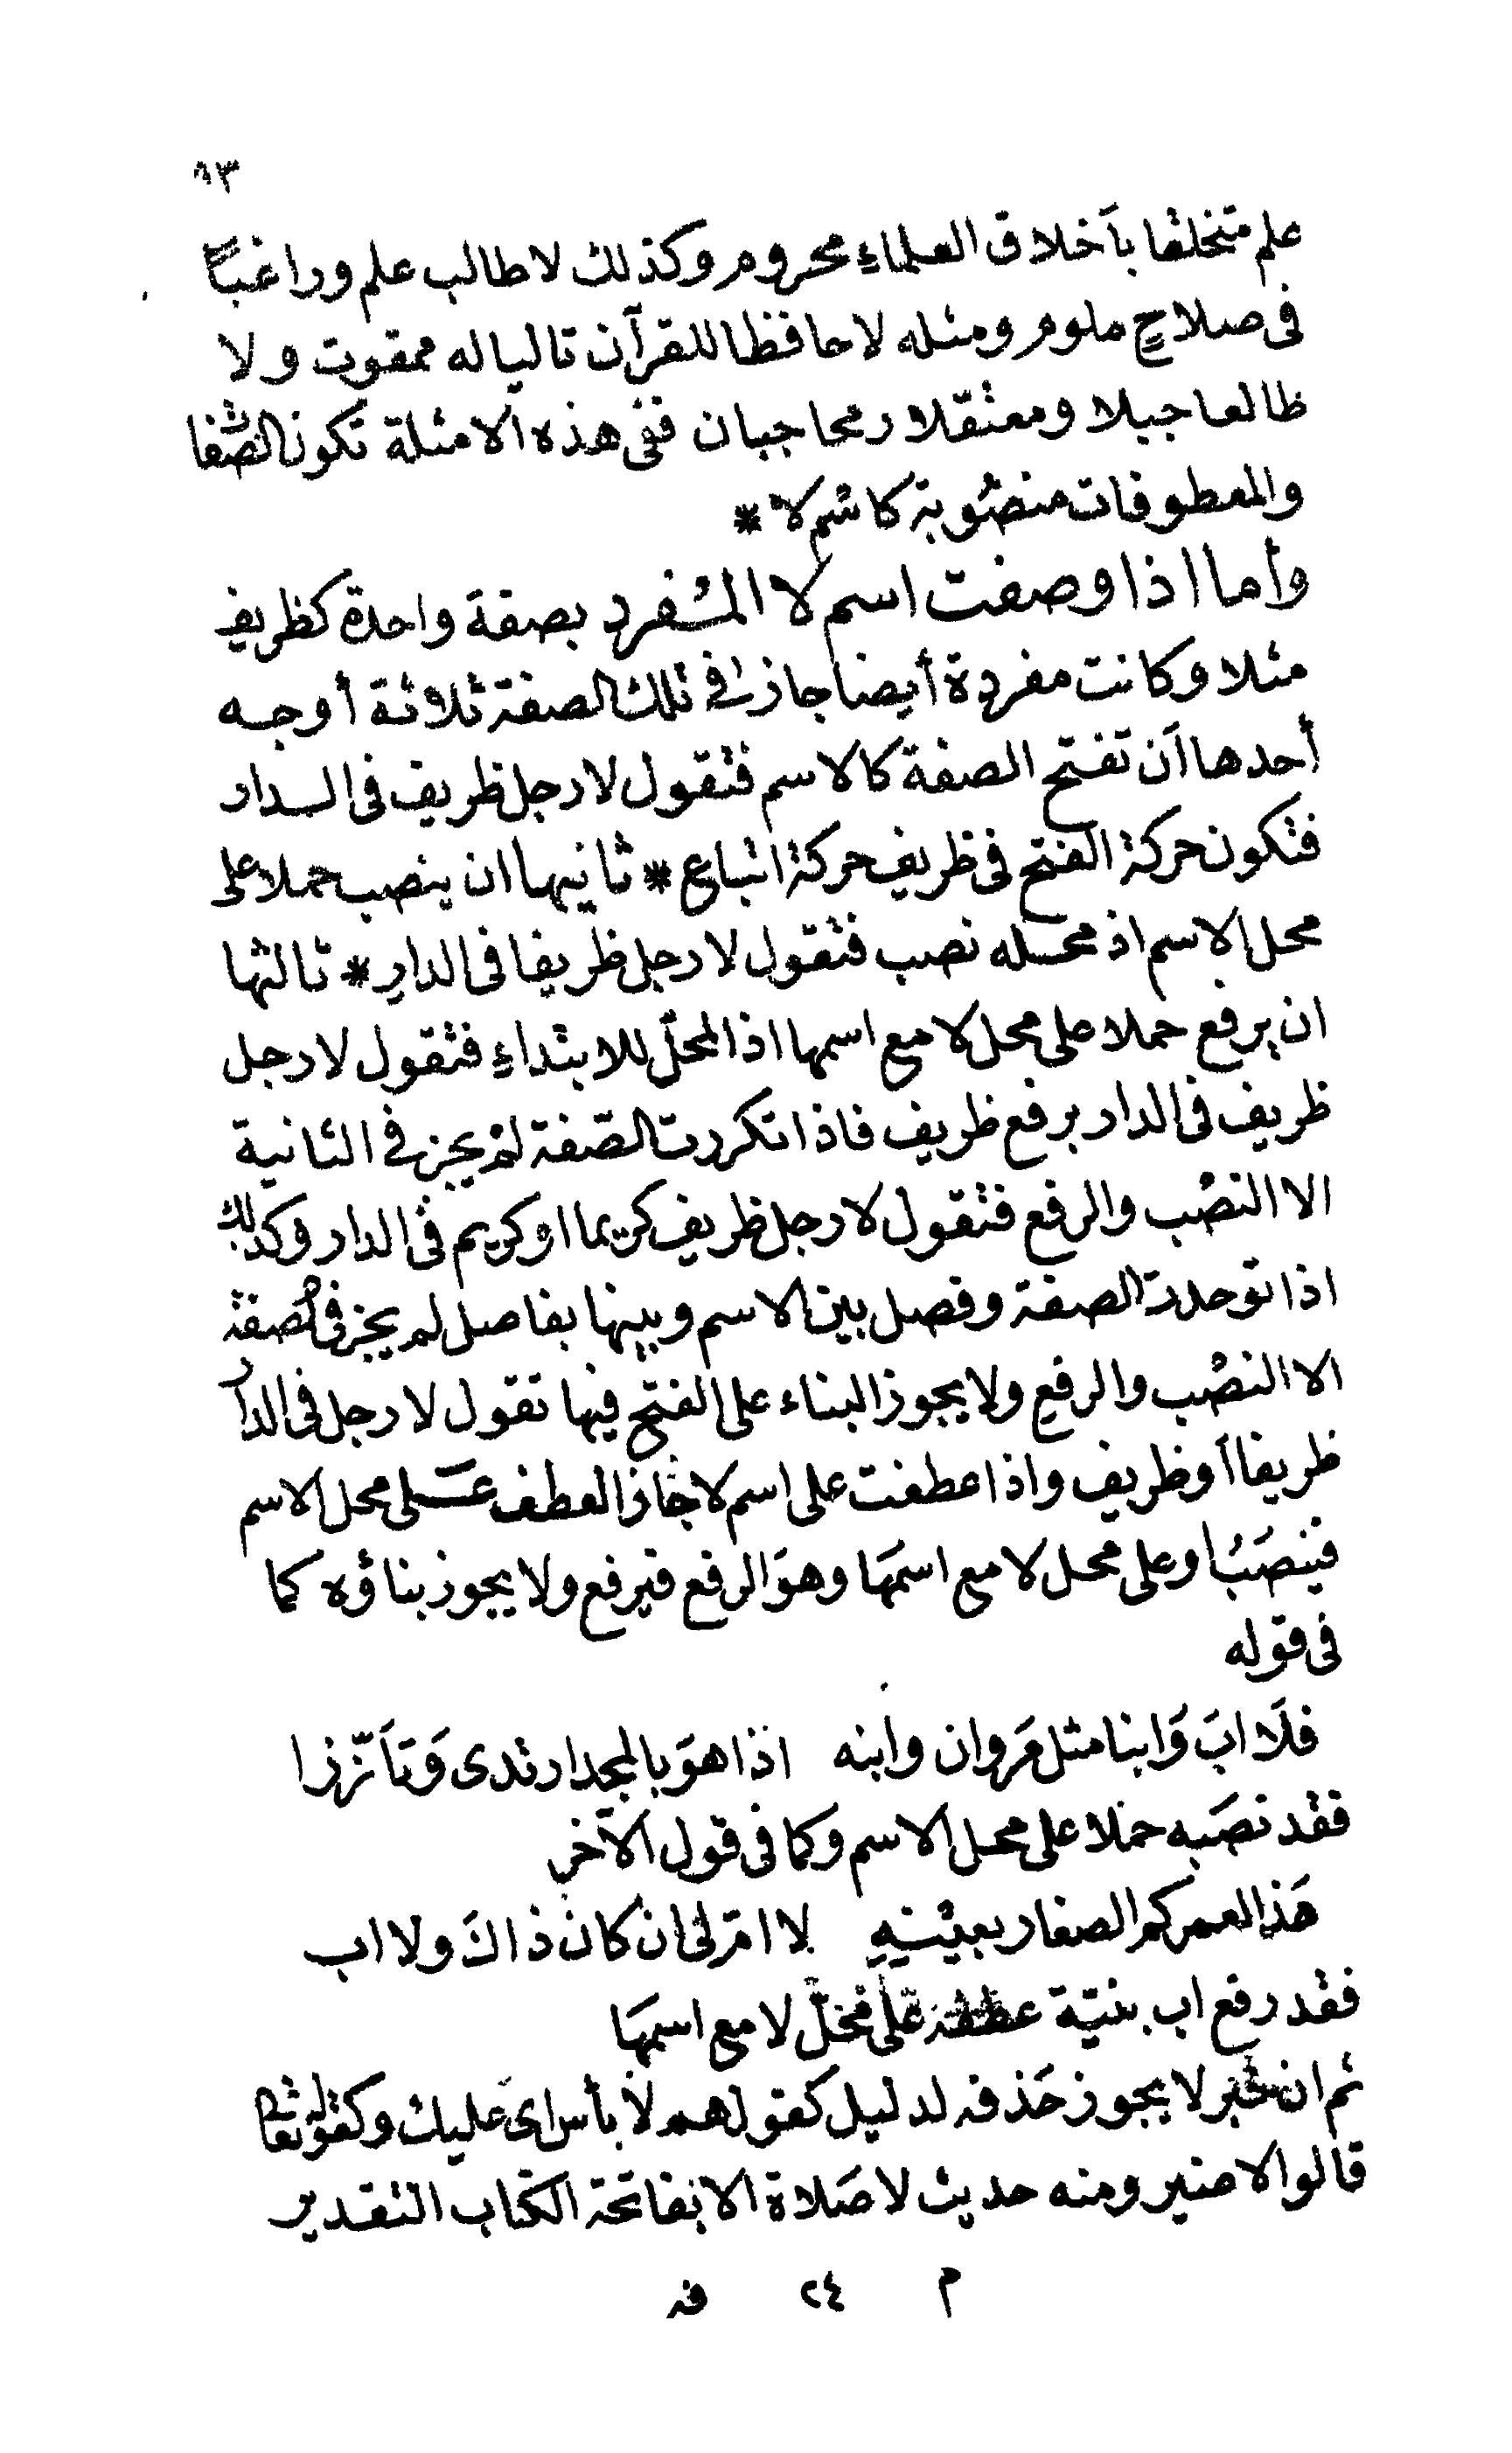 ٩٣
علم متخلقا بأخلاق العلماء محروم وكذلك لا طالب علم وراغبًا
فى صلاح ملوم ومثله لا حافظا للقرآن تاليا له ممقوت ولا
طالعا جبلا ومعتقلا رمحا جبان ففى هذه الامثلة تكون الصفات
والمعطوفات منصوبة كاسم لا *
وأما اذا وصفت اسم لا المفرد بصفة واحدة كظريف
مثلا وكانت مفردة أيضا جاز فى تلك الصفة ثلاثة أوجه
أحدها أن تفتح الصفة كالاسم فتقول لا رجل ظريف فى الدار
فتكون حركة الفتح فى ظريف حركة اتباع * ثانيها ان ينصب حملا على
محل الاسم اذ محله نصب فتقول لا رجل ظريفا فى الدار * ثالثها
ان يرفع حملا على محل لا مع اسمها اذ المحلّ للابتداء فتقول لا رجل
ظريف فى الدار برفع ظريف فاذا تكررت الصّفة لم يجز فى الثانية
الا النصب والرفع فتقول لا رجل ظريف كريما او كريم فى الدار وكذلك
اذا توحدت الصفة وفصل بين الاسم وبينها بفاصل لم يجز فى الصفة
الا النصب والرفع ولا يجوز البناء على الفتح فيها تقول لا رجل فى الدار
ظريفا أو ظريف واذا عطفت على اسم لا جاز العطف على محل الاسم
فينصَبُ او على محل لا مع اسمَها وهوَ الرفع فيرفع ولا يجوز بناؤه كما
فى قوله
فلَا ابَ وَابنا مثل مَروان وابنه اذا هوَ بالمجد ارتدى وَتأزّرا
فقد نصَبه حملا على محل الاسم وكما فى قول الآخر
هَذا لعمركم الصغار بعينه لا امّ لى ان كان ذاكَ ولا اب
فقد رفع اب بنيّة عطفه على محلّ لا مع اسمهَا
ثم ان خبر لا يجوز حَذفه لدليل كقولهم لا بأس اى عليك وكقوله تعالى
قالوا لا ضير ومنه حديث لا صَلاة الا بفاتحة الكتاب التقدير
م ٢٤ فه